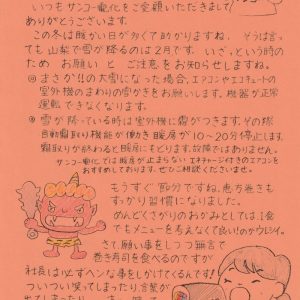 いつも サンコー電化をご愛顧いただきまして
ありがとうございます。
この冬は暖かい日が多くて助かりますね。そうは言っ
ても山梨で雪が降るのは2月です。いざっという時の
ため お願い と ご注意をお知らせしますね。
まさか!!の大雪になった場合、エアコンやエコキュートの
室外機のまわりの雪かきをお願いします。機器が正常
運転できなくなります。
雪が降っている時は室外機に霜がつきます。その際
自動霜取り機能が働き暖房が10～20分停止します。
霜取りが終わると暖房にもどります。故障ではありません。
サンコー電化では暖房が止まらない エネチャージ付きのエアコンを
おすすめしております。ぜひご相談くださいませ。
もうすぐ節分ですね。恵方巻きも
すっかり習慣になりました。
めんどくさがりのおかみとしては、1食
でもメニューを考えなくて良い!のがウレシイ。
さて、願い事をしつつ無言で
巻き寿司を食べるのですが
社長は必ずヘンな事をしかけてくるんです!
ついつい笑ってしまったり、言葉が